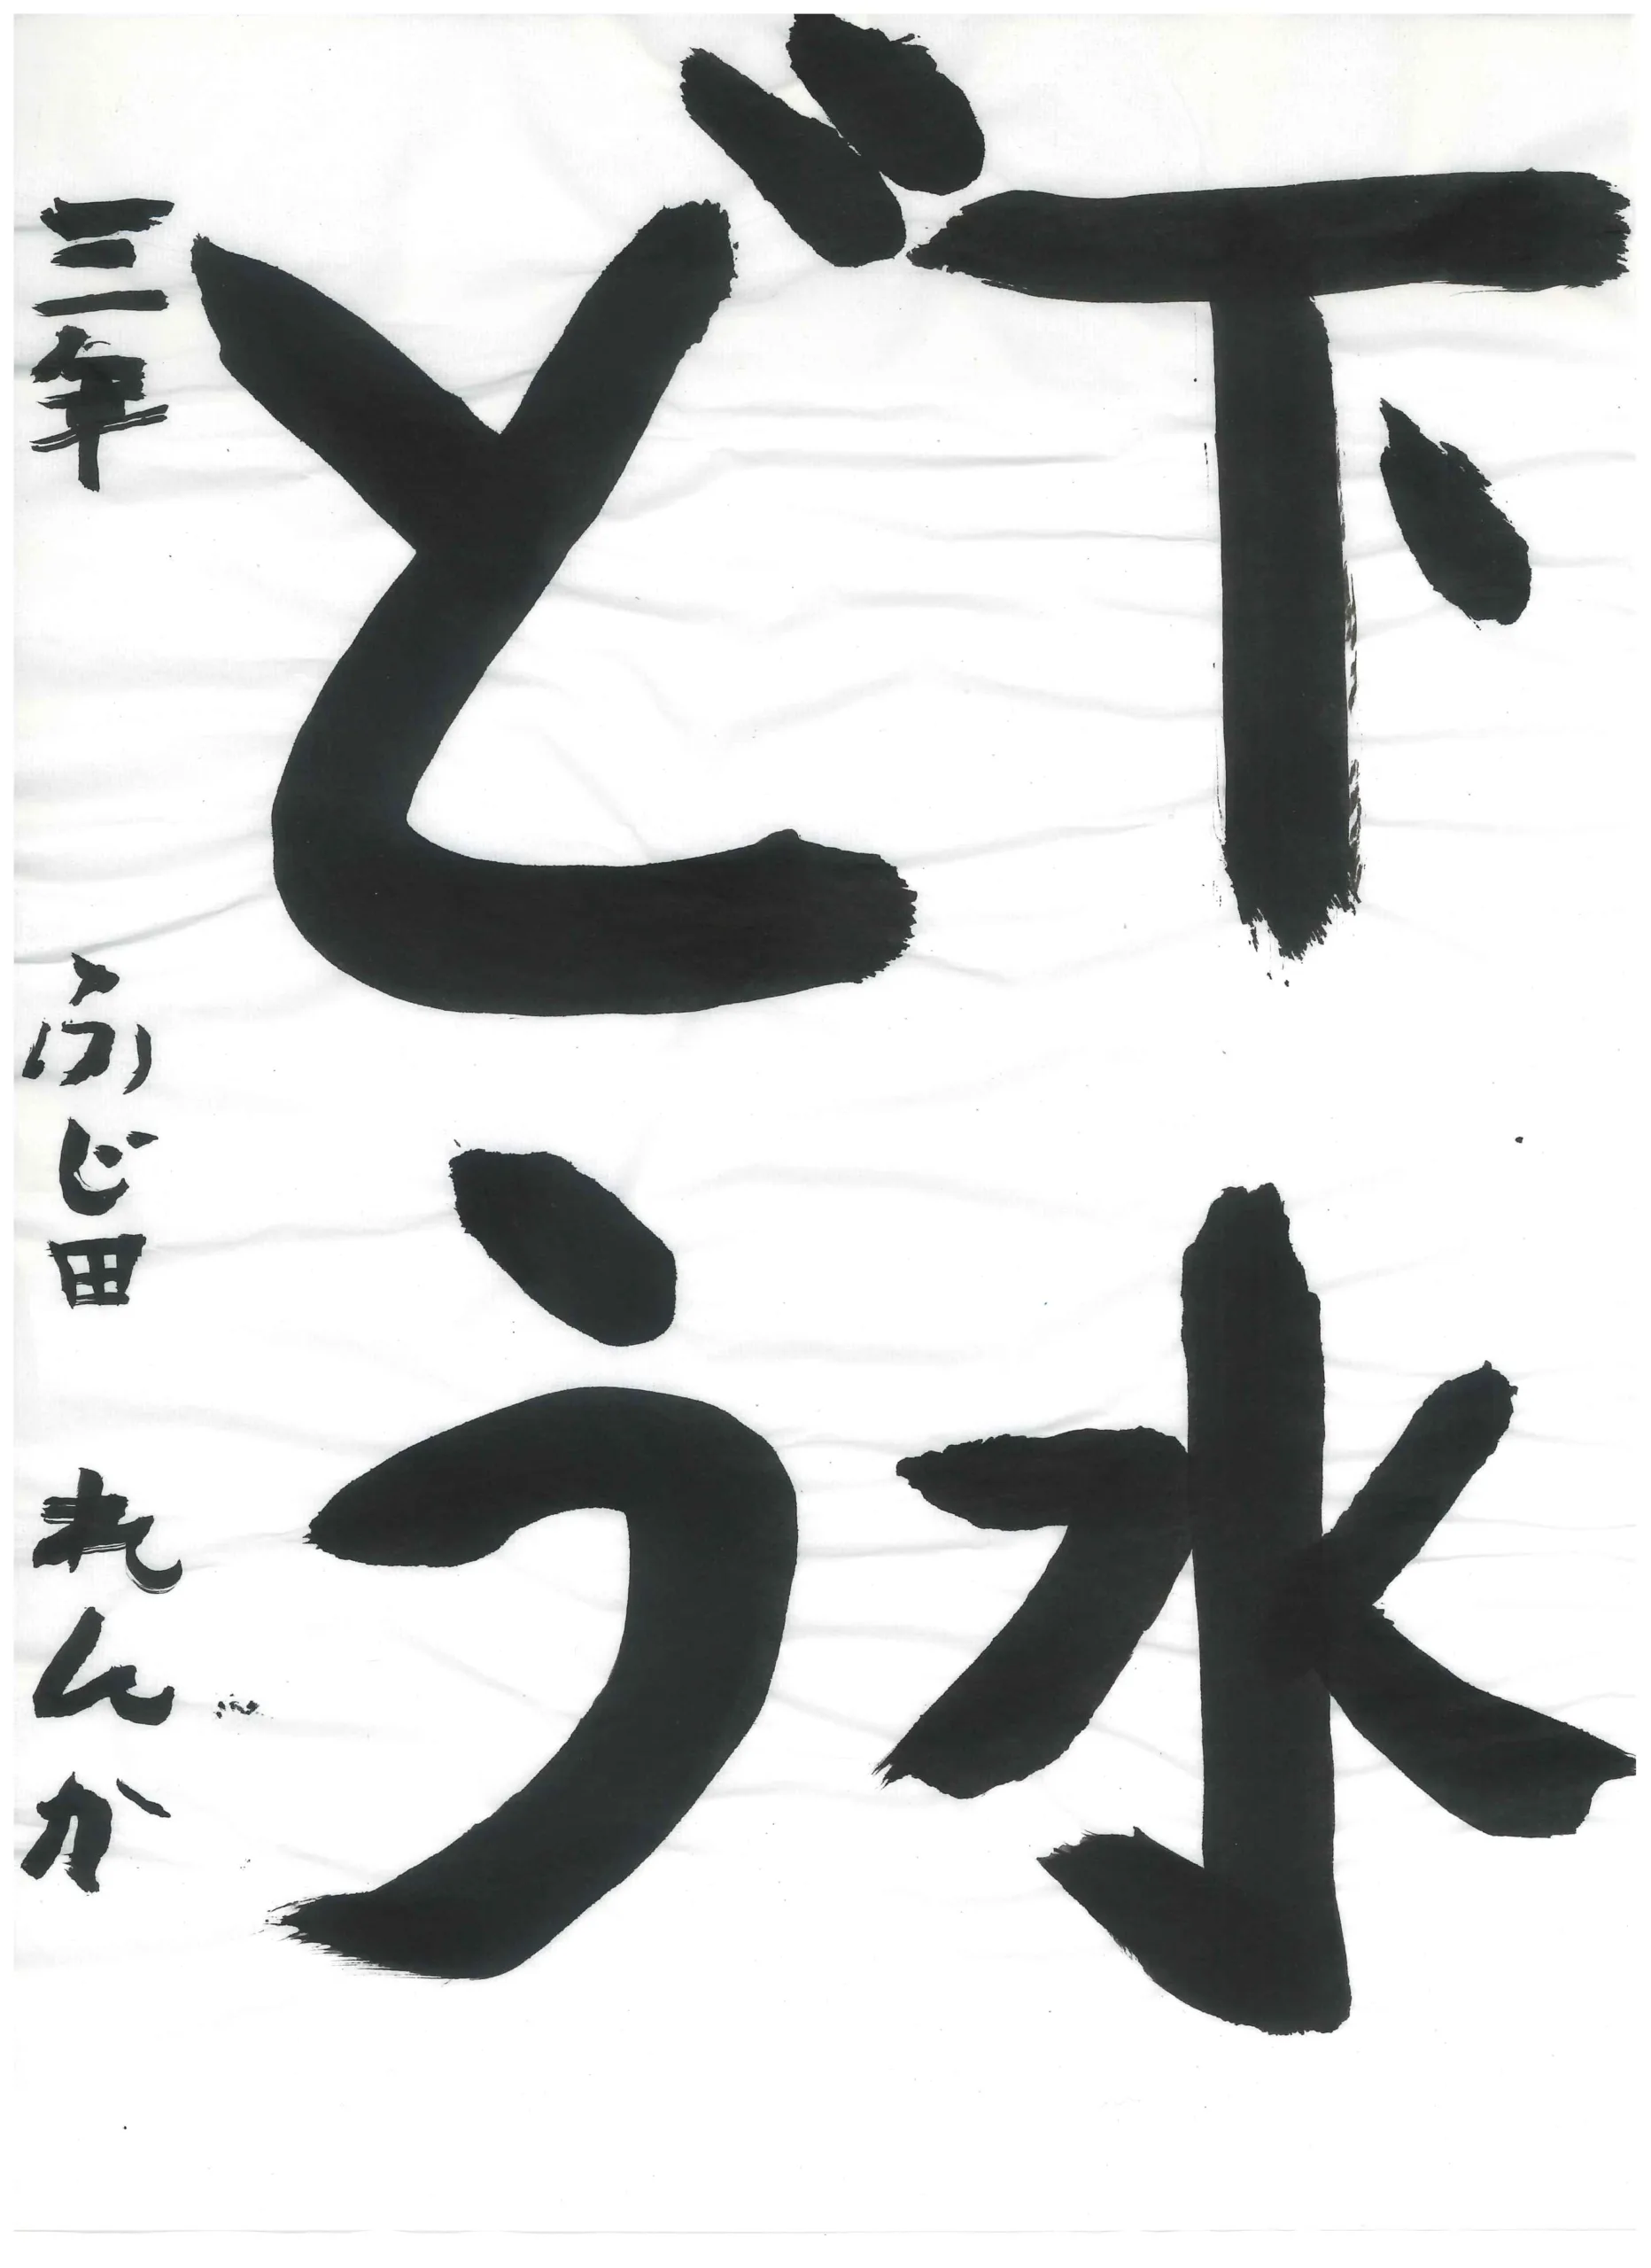 下水
どう
三年 ふじ田 れんか